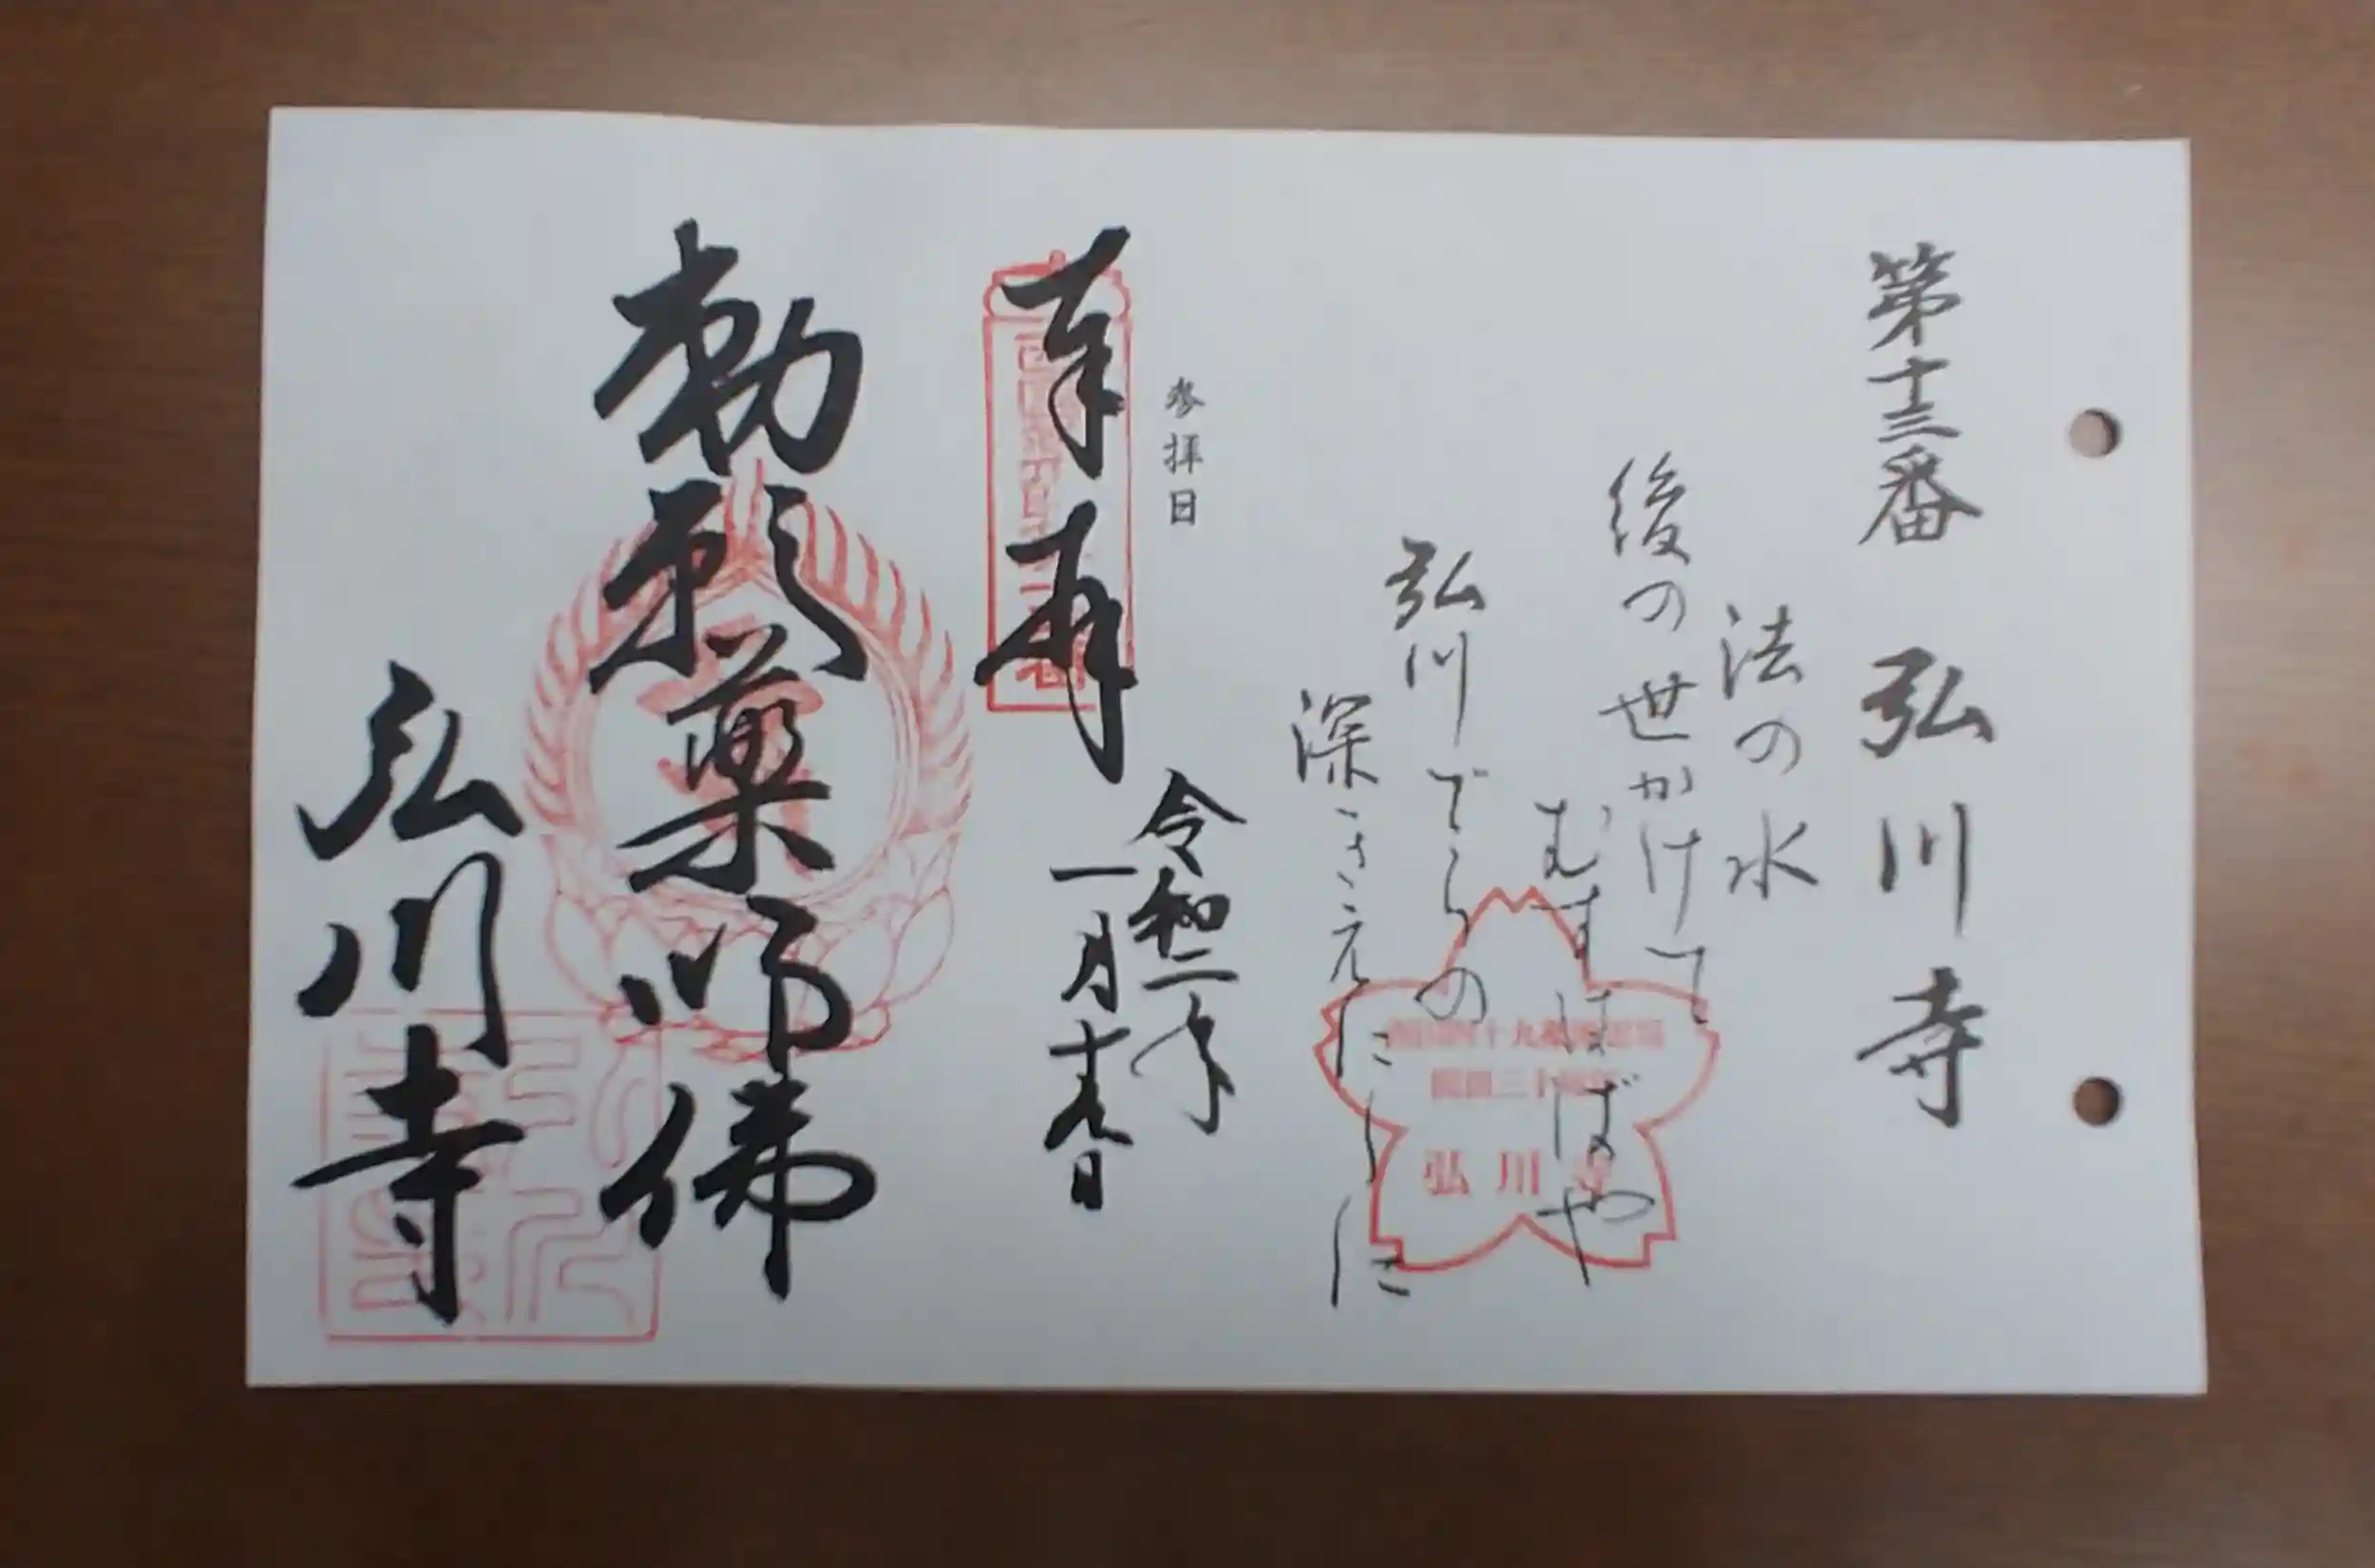 第十三番 弘川寺
法の水
後の世かけて
むすはばや
弘川でらの
深きえにしに
弘川寺
参拝日
奉拝
令和二年
一月十九日
勅願薬師佛
弘川寺